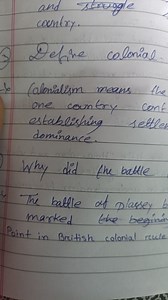 and struggle
country.
Define colonial
Colonialism means the
one country cont
establishing settle
dominance.
Why did the battle
The battle of plassey b
marked the beginin
Point in British colonial rule